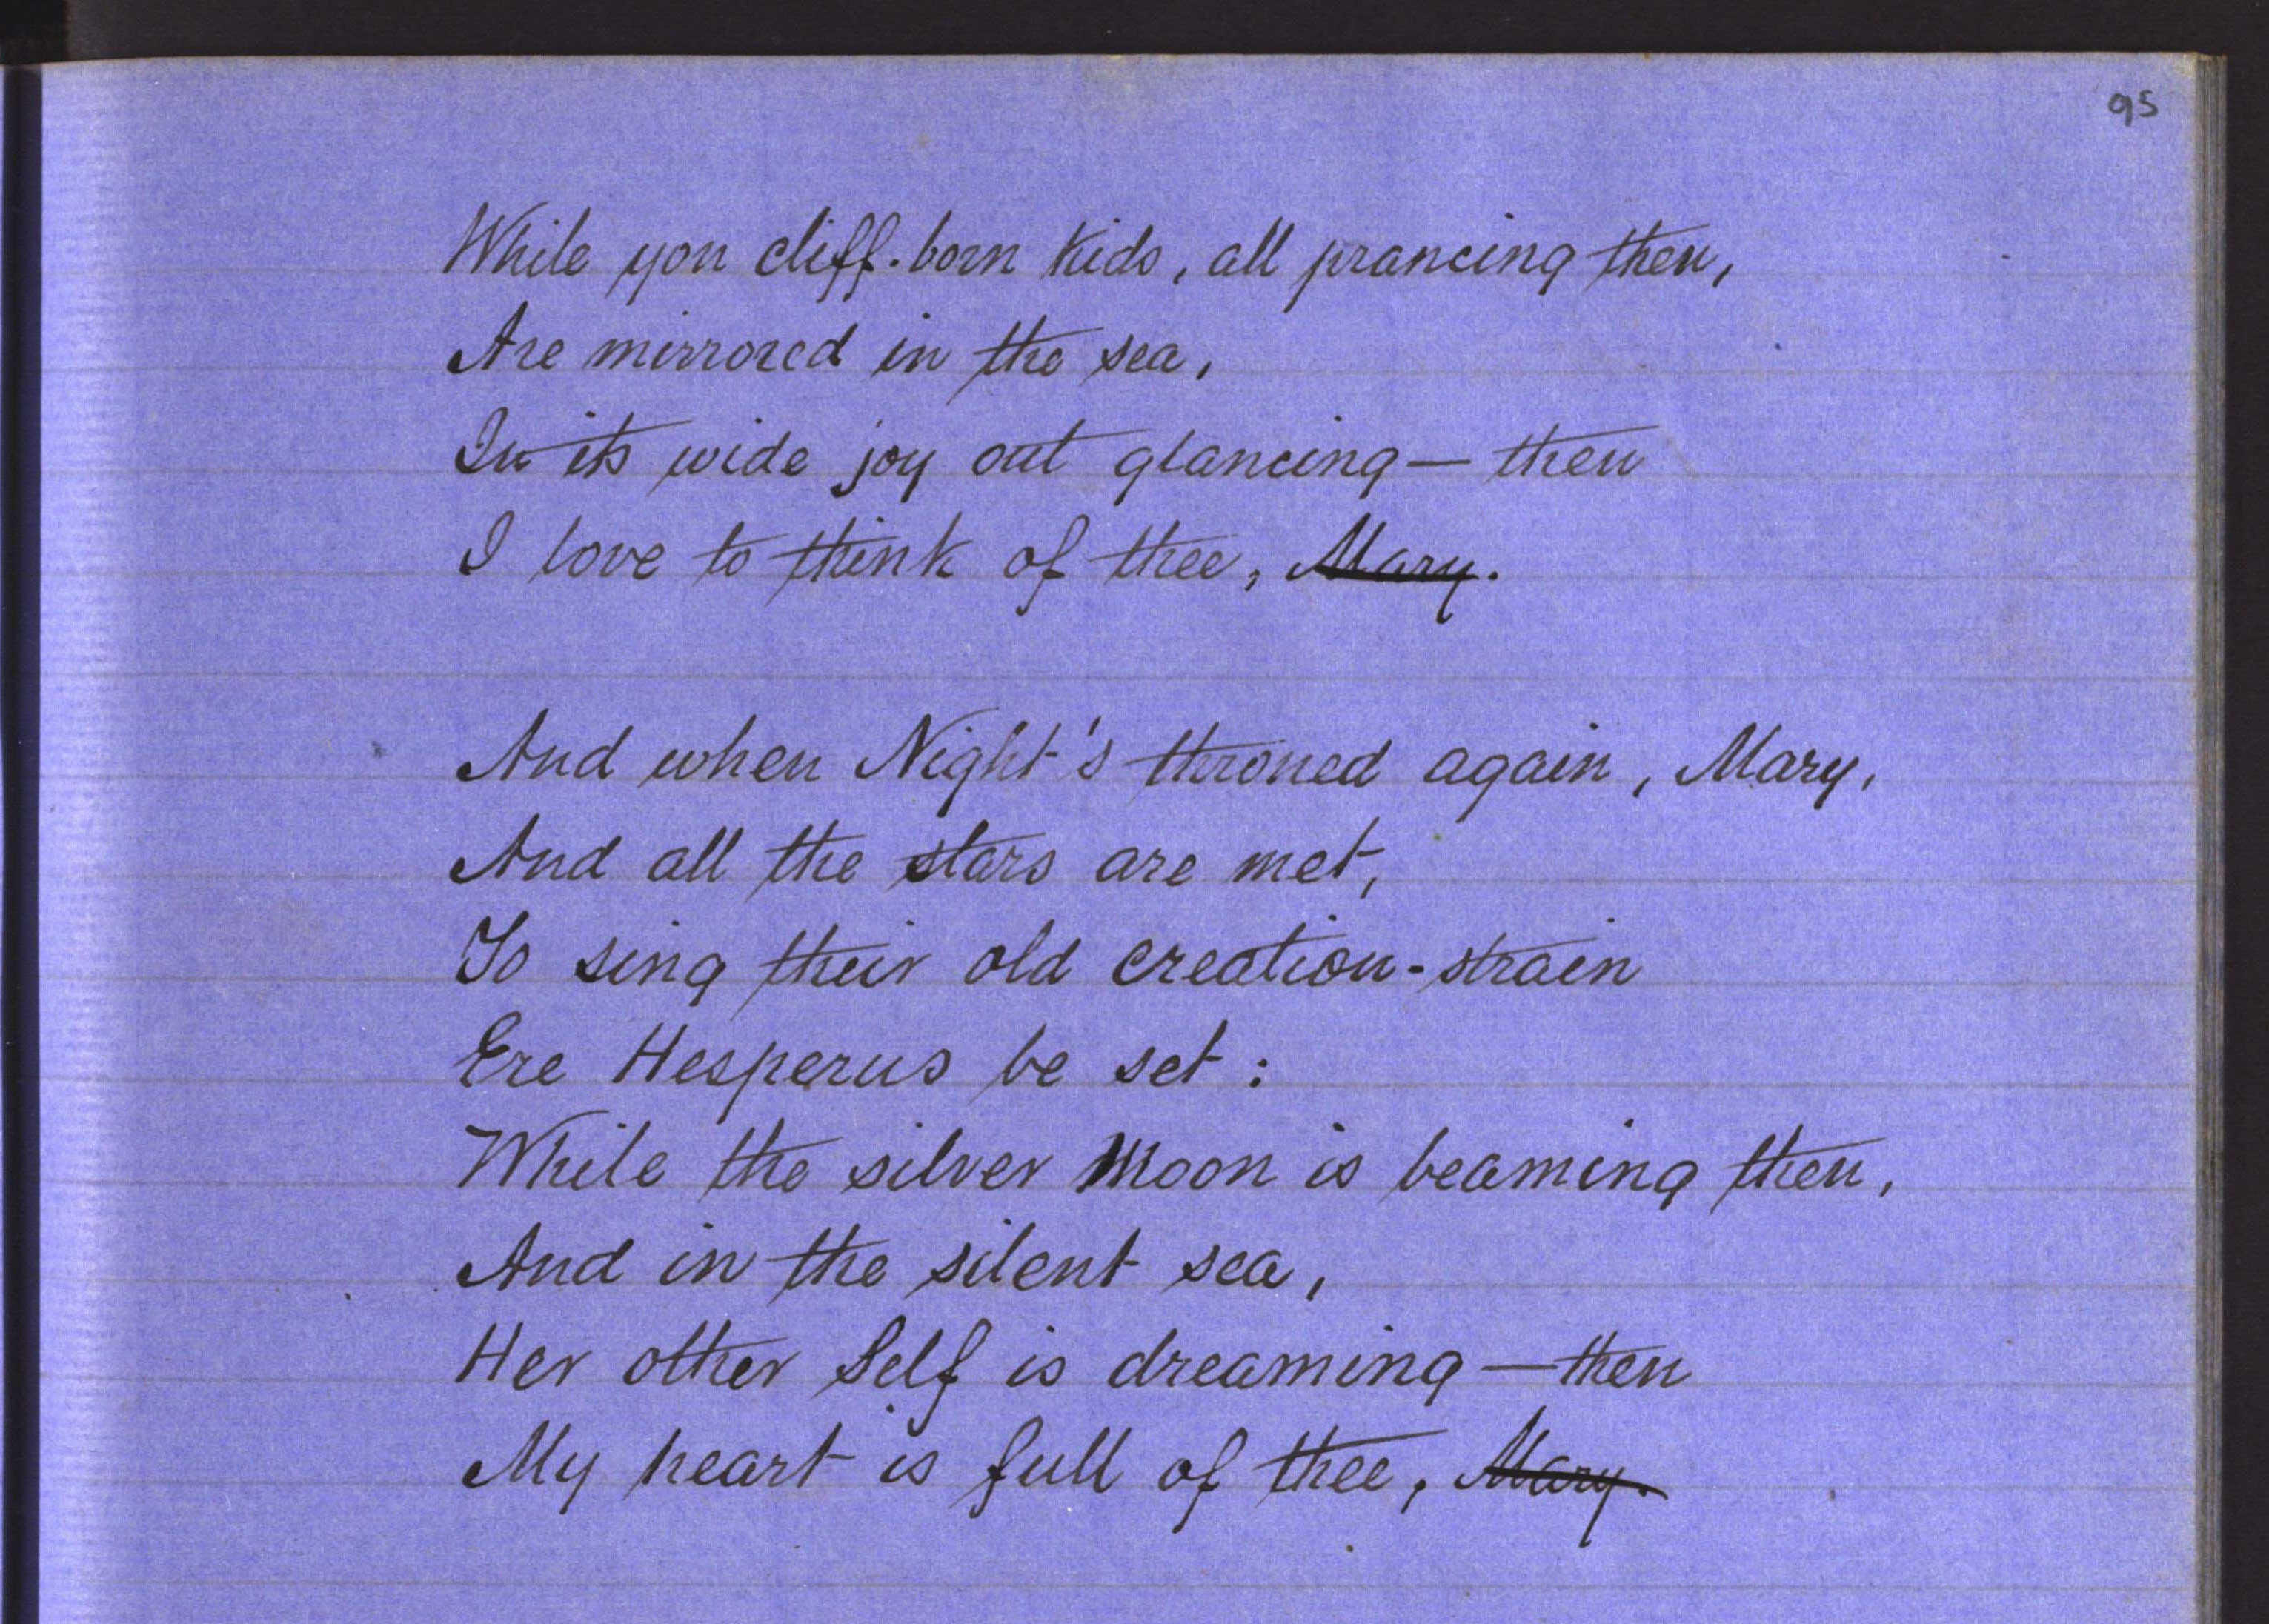 95
While yon cliff-born kids, all prancing then,
Are mirrored in the sea,
In its wide joy out glancing — then
I love to think of thee, Mary.
And when Night's throned again, Mary,
And all the stars are met,
To sing their old creation-strain
Ere Hesperus be set:
While the silver Moon is beaming then,
And in the silent sea,
Her other Self is dreaming — then
My heart is full of thee, Mary.